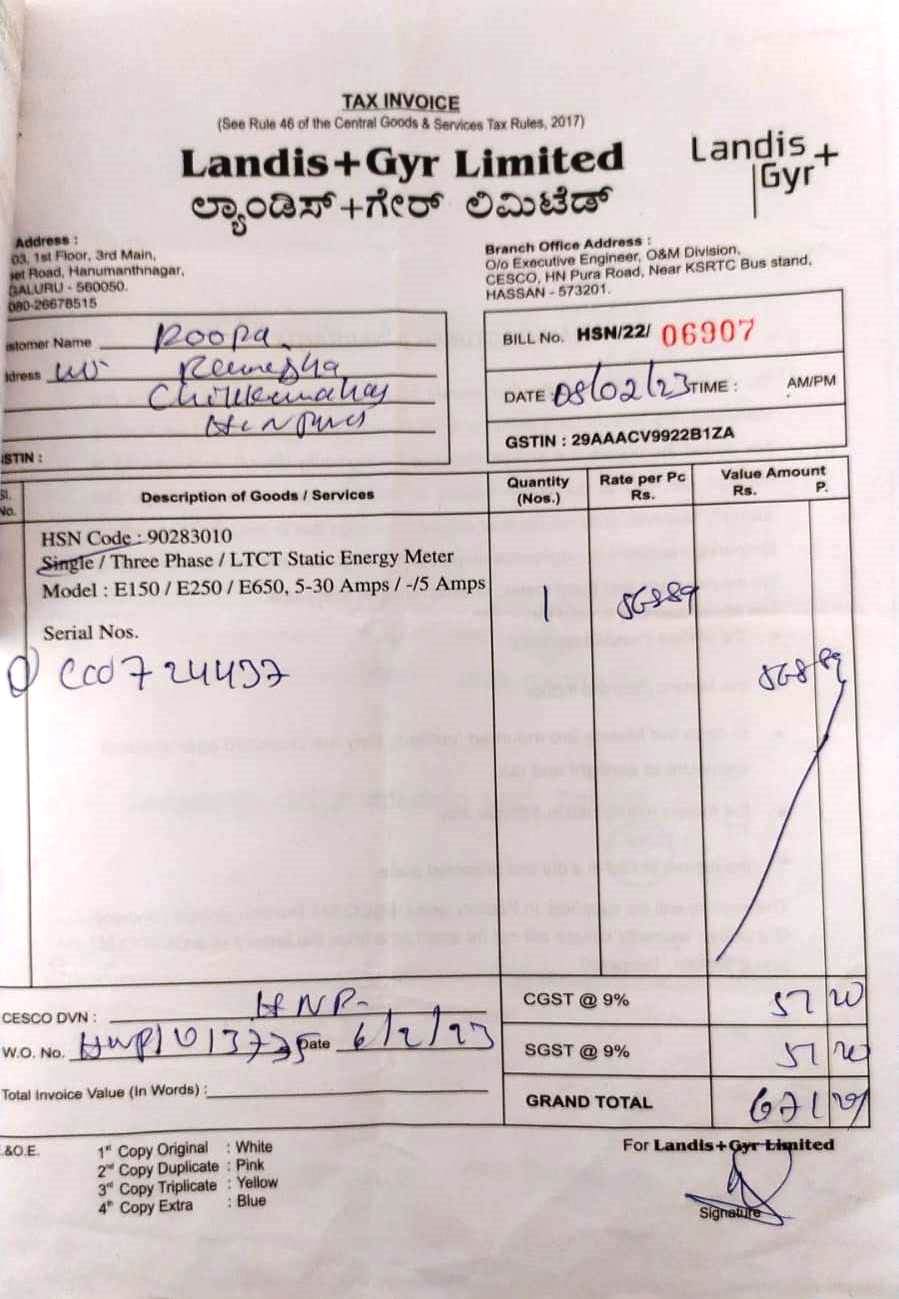 TAX INVOICE
(See Rule 46 of the Central Goods & Services Tax Rules, 2017)
Landis+Gyr Limited
ಲ್ಯಾಂಡಿಸ್+ಗೇರ್ ಲಿಮಿಟೆಡ್
Landis+
Gyr
Address :
03, 1st Floor, 3rd Main,
et Road, Hanumanthnagar,
GALURU - 560050.
080-26678515
Branch Office Address :
O/o Executive Engineer, O&M Division,
CESCO, HN Pura Road, Near KSRTC Bus stand,
HASSAN - 573201.
stomer Name Roopa
dress
BILL No. HSN/22/ 06907
DATE : 08/02/23 TIME : AM/PM
GSTIN : 29AAACV9922B1ZA
STIN :
Sl. No.
Description of Goods / Services
Quantity (Nos.)
Rate per Pc Rs.
Value Amount Rs. P.
HSN Code : 90283010
Single / Three Phase / LTCT Static Energy Meter
Model : E150 / E250 / E650, 5-30 Amps / -/5 Amps
1 568 89
Serial Nos.
1) CCO724497
568 89
CESCO DVN : HNP-
W.O. No. Date 6/2/23
Total Invoice Value (In Words) :
CGST @ 9% 51 20
SGST @ 9% 51 20
GRAND TOTAL 671 29
.&O.E.
1st Copy Original : White
2nd Copy Duplicate : Pink
3rd Copy Triplicate : Yellow
4th Copy Extra : Blue
For Landis+Gyr Limited
Signature